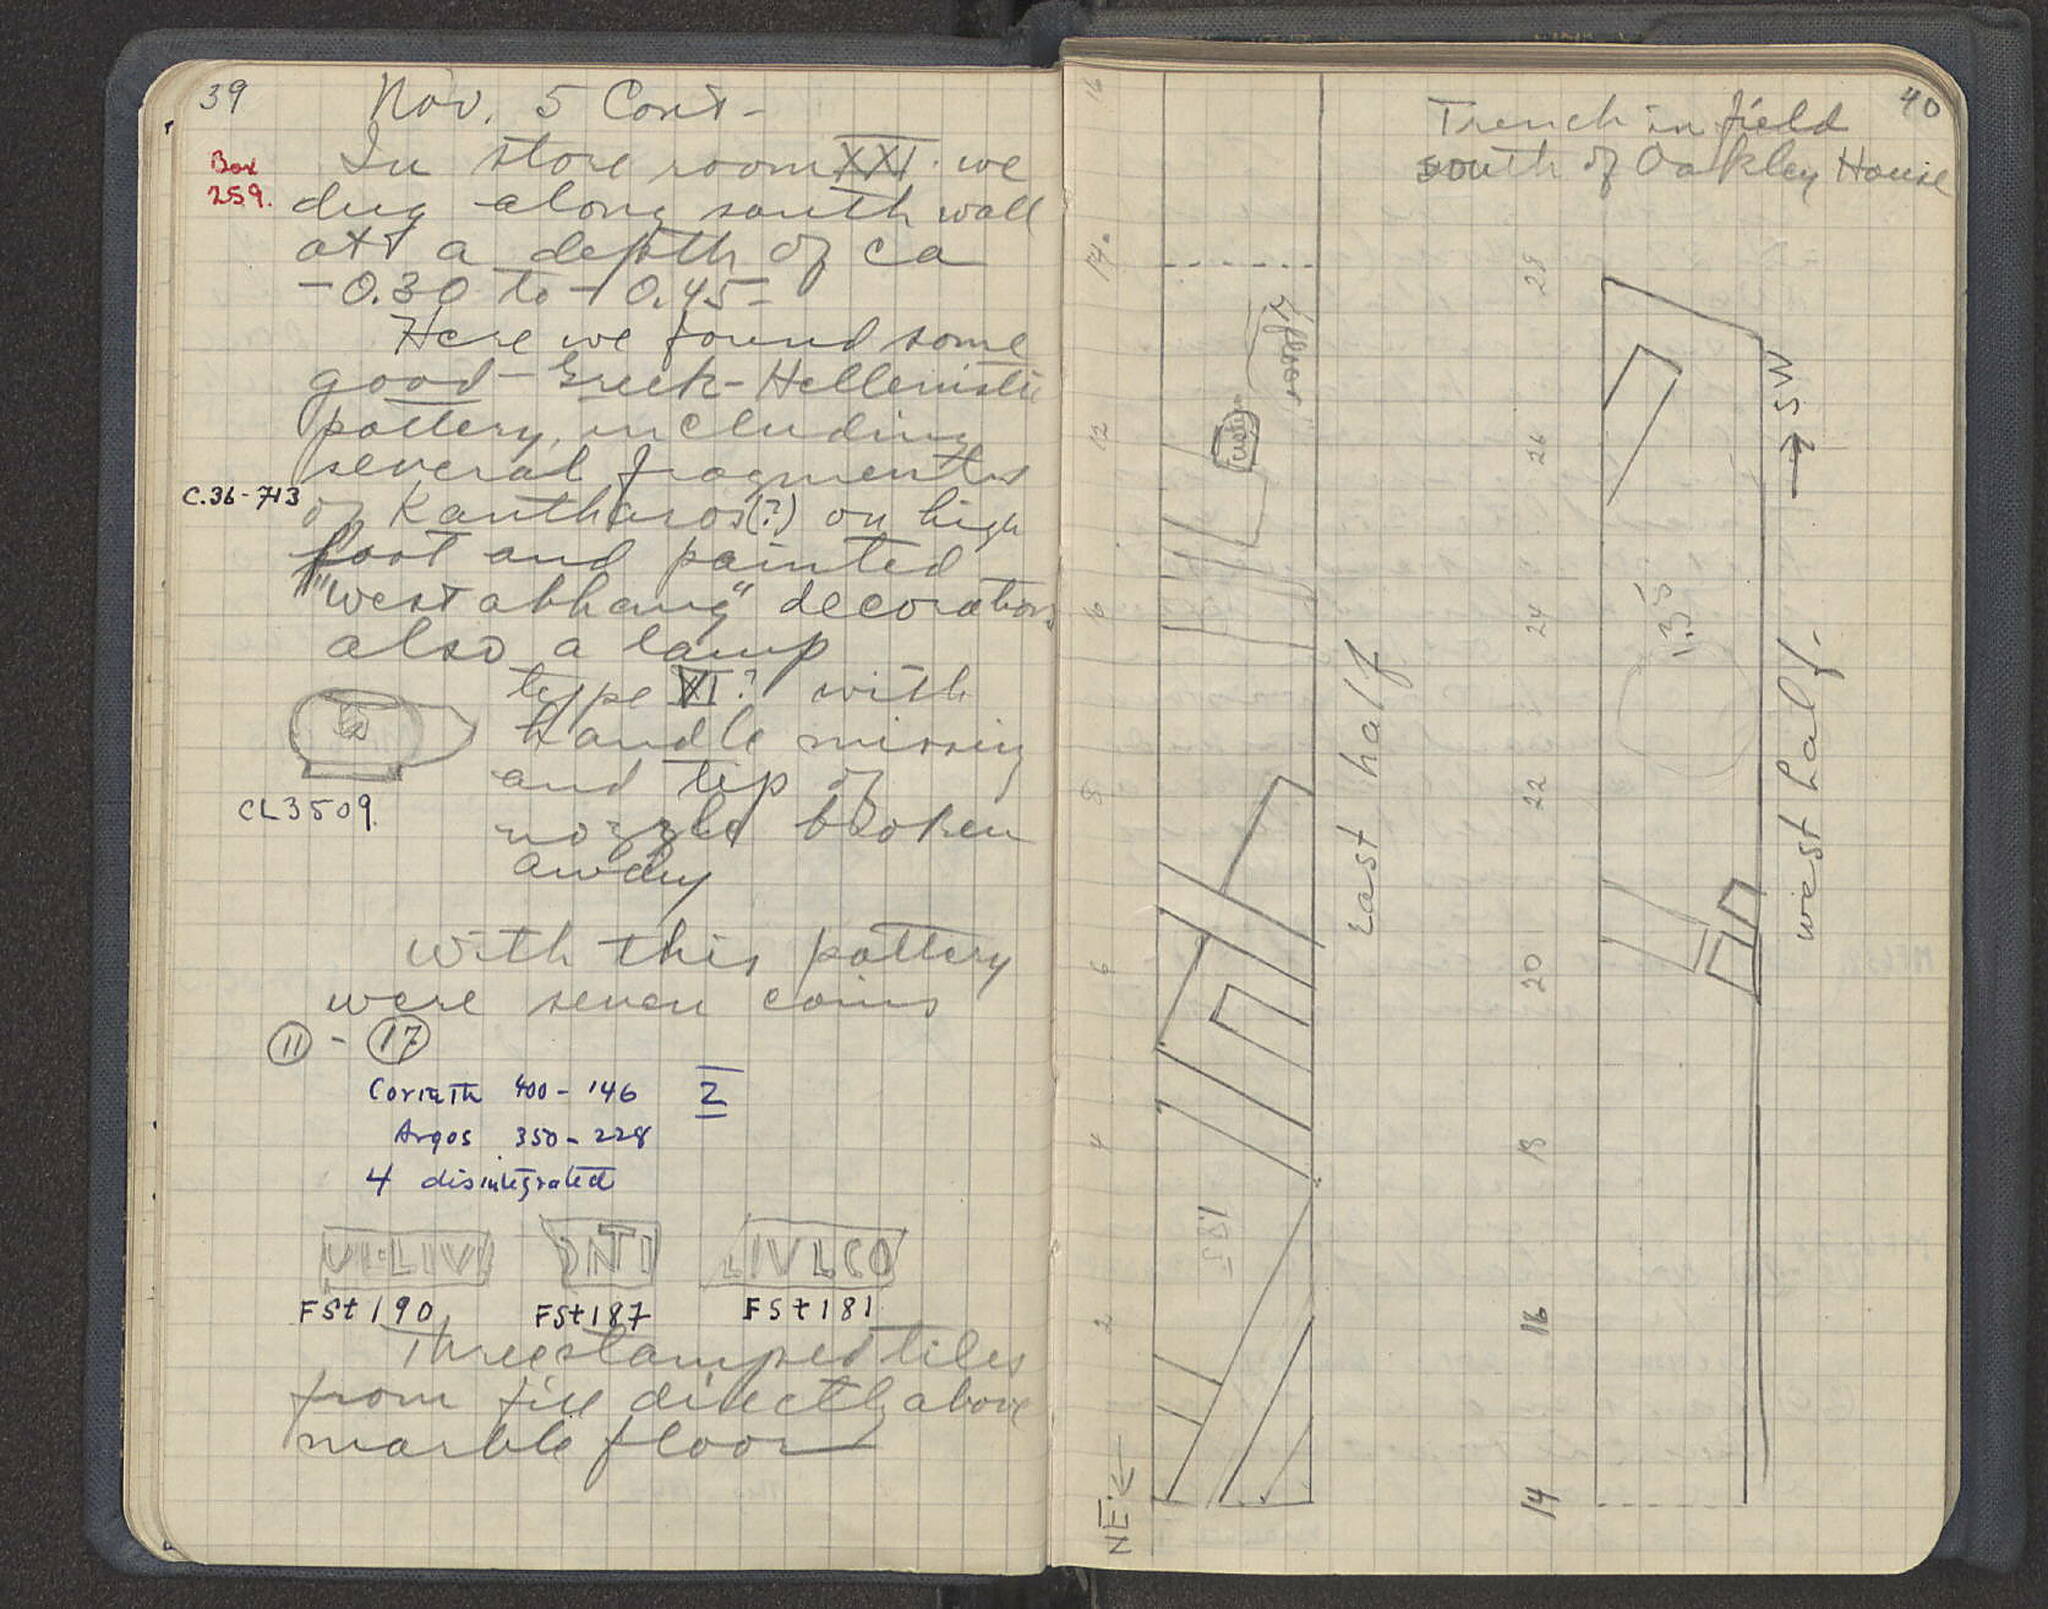 39
Nov. 5 Cont-
Box
259.
In store room XXI. we
dug along south wall
att a depth of ca
-0.30 to - 0.45-
Here we found some
good - Greek - Hellenistic
pottery, including
several fragments
C.36-713
of Kantharos(?) on high
foot and painted
"west abhang" decoration
also a lamp
type XI? with
handle missing
and tip of
nozzle broken
away
CL3509.
with this pottery
were seven coins
11 - 17
Corinth 400 - 146 2
Argos 350 - 228
4 disintegrated
VI·LIVI
ONTI
LIVLCO
FSt 190
FSt 187
FSt 181
Three stamped tiles
from fill directly above
marble floor
40
Trench in field
south of Oakley House
16
14
12
8
6
4
2
NE
floor
East half
28
26
24
22
20
18
16
14
→ SW
1.35
west half-